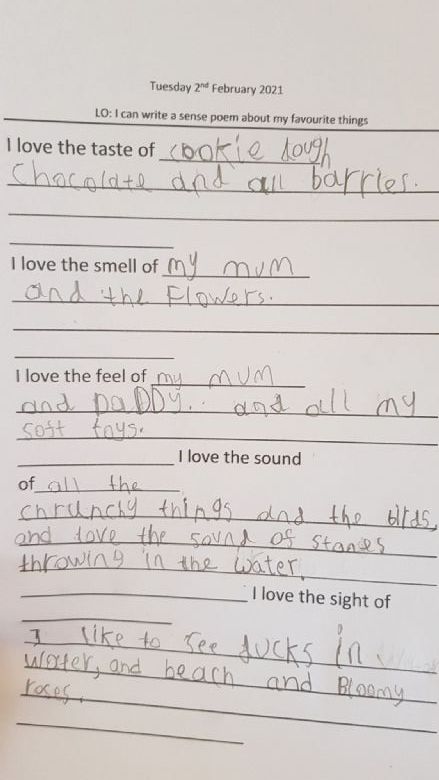 Tuesday 2nd February 2021
LO: I can write a sense poem about my favourite things
I love the taste of cookie dough
Chocolate and all barries.
I love the smell of my mum
and the Flowers.
I love the feel of my mum
and DaDDy.. and all my
soft toys.
I love the sound
of all the
chrunchy things and the birds,
and love the sound of stones
throwing in the water.
I love the sight of
I like to see ducks in
water, and beach and Bloomy
roses.